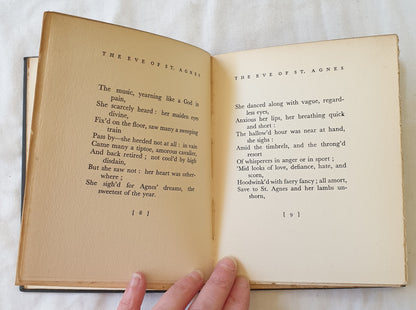 THE EVE OF ST. AGNES
The music, yearning like a God in
pain,
She scarcely heard : her maiden eyes
divine,
Fix'd on the floor, saw many a sweeping
train
Pass by—she heeded not at all : in vain
Came many a tiptoe, amorous cavalier,
And back retired ; not cool'd by high
disdain,
But she saw not : her heart was other-
where ;
She sigh'd for Agnes' dreams, the
sweetest of the year.
[ 8 ]
THE EVE OF ST. AGNES
She danced along with vague, regard-
less eyes,
Anxious her lips, her breathing quick
and short :
The hallow'd hour was near at hand :
she sighs
Amid the timbrels, and the throng'd
resort
Of whisperers in anger or in sport ;
'Mid looks of love, defiance, hate, and
scorn,
Hoodwink'd with faery fancy ; all amort,
Save to St. Agnes and her lambs un-
shorn,
[ 9 ]